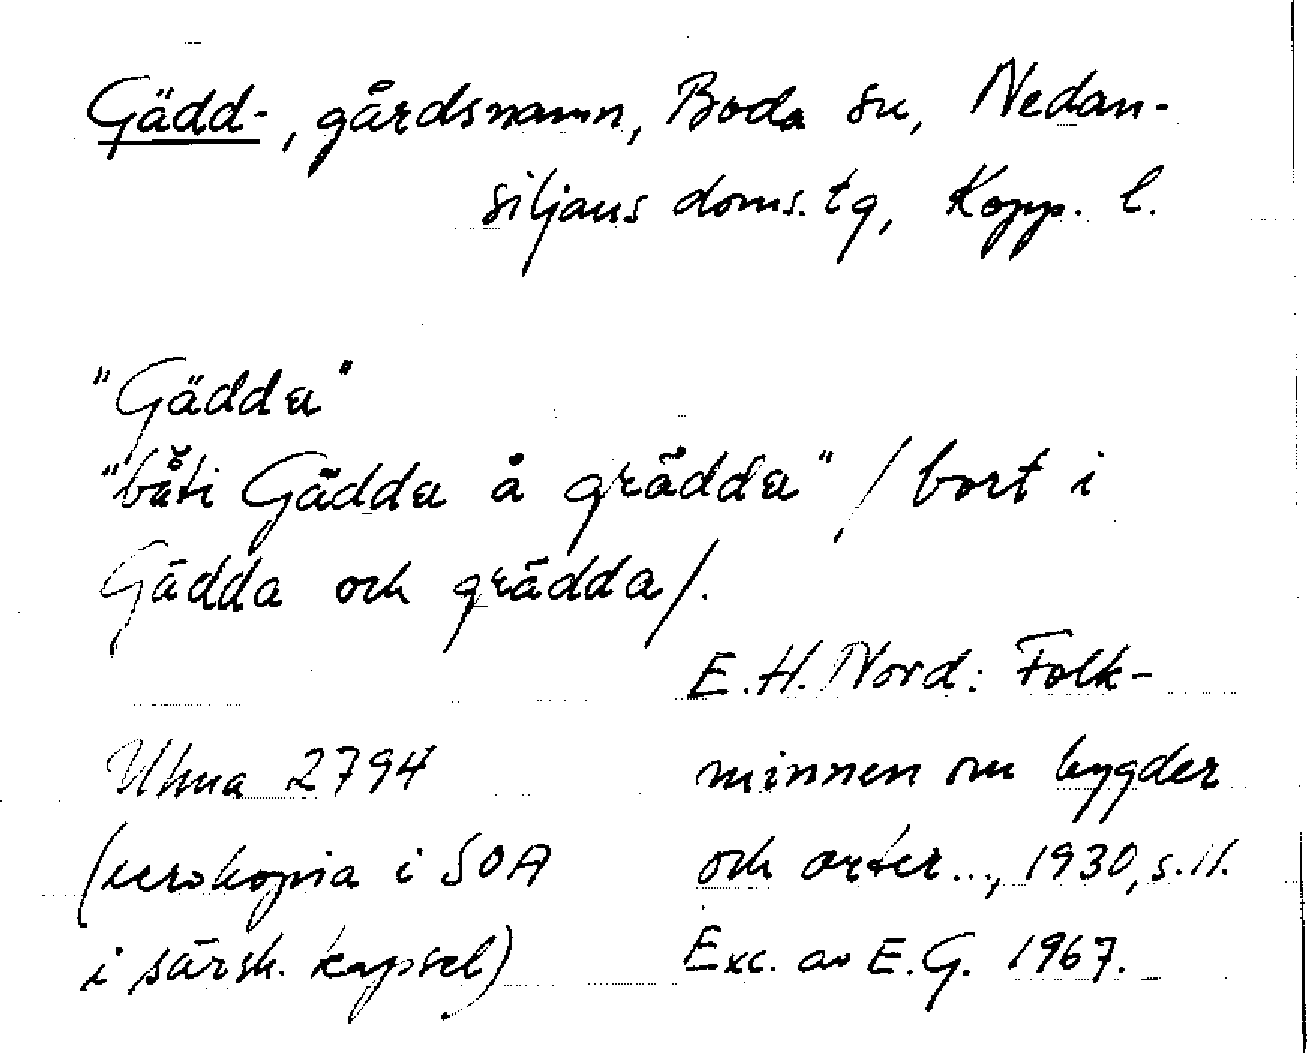 Gädd-, gårdsnamn, Boda sn, Nedan-
siljans doms. tg, Kopp. l.
"Gädda"
"båti Gädda å grädda" / bort i
Gädda och grädda/.
E. H. Nord: Folk-
minnen om bygder
och orter..., 1930, s. 11.
Exc. av E. G. 1967.
Uhma 2794
(xerokopia i SOA
i särsk. kapsel)